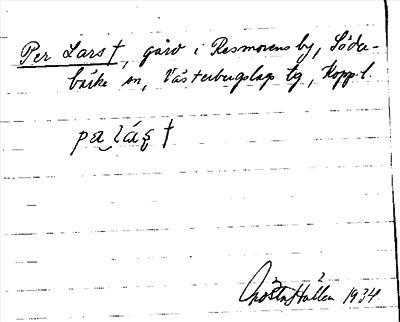 Per Lars †, gård i Resmorens by, Söder-
bärke sn, Västerbergslags tg, Kopp. l.
pa lás †
Gösta Hallen 1934